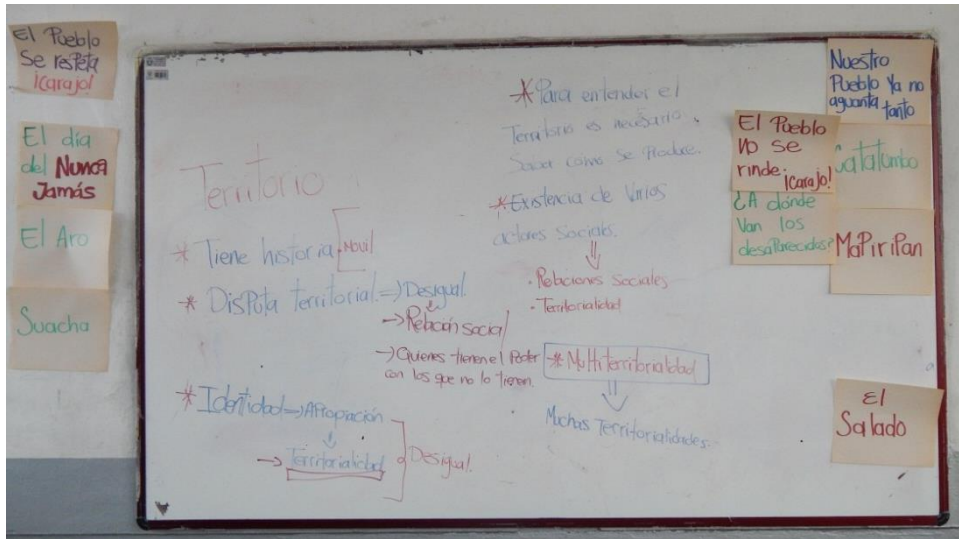 El Pueblo
Se respeta
¡Carajo!
El día
del Nunca
Jamás
El Aro
Suacha
Territorio
* Tiene historia Movil
* Disputa territorial => Desigual.
-> Relación social
-> Quienes tienen el Poder
con los que no lo tienen.
* Identidad -> Apropiación
-> Territorialidad
Desigual.
* Para entender el
Territorio es necesario
Saber cómo se Produce.
* Existencia de Varios
actores Sociales.
· Relaciones Sociales
· Territorialidad
* Multiterritorialidad
Muchas Territorialidades.
Nuestro
Pueblo Ya no
aguanta tanto
El Pueblo
No se
rinde ¡Carajo!
¿A dónde
Van los
desaParecidos?
Catatumbo
MaPiriPan
El
Salado